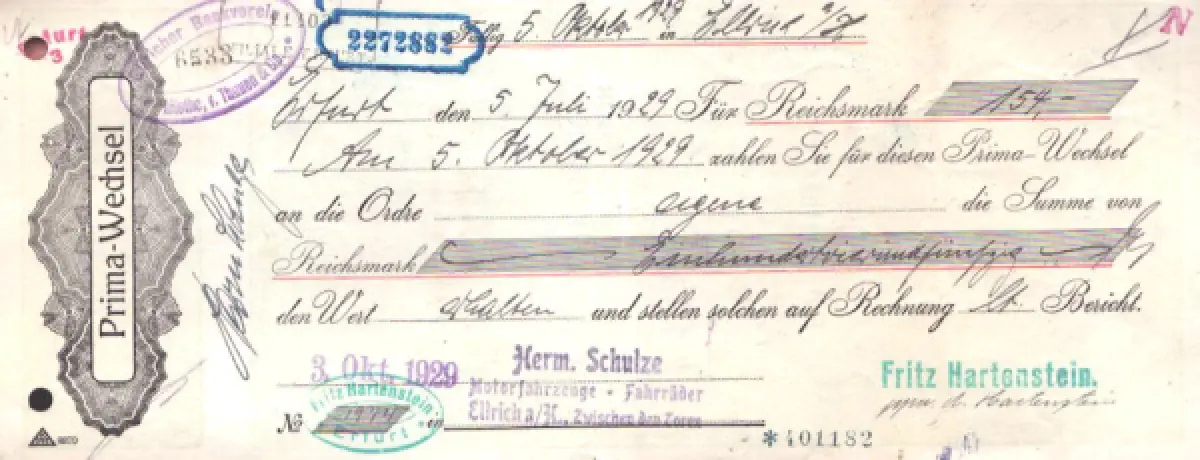 Prima-Wechsel
2272882
Fällig 5. Oktober 1929 in Ellrich a/H
Erfurt den 5. Juli 1929 Für Reichsmark 154,-
Am 5. Oktober 1929 zahlen Sie für diesen Prima-Wechsel
an die Ordre eigene die Summe von
Reichsmark Einhundertvierundfünfzig
den Wert erhalten und stellen solchen auf Rechnung lt. Bericht.
3. Okt. 1929
Herm. Schulze
Motorfahrzeuge - Fahrräder
Ellrich a/H., Zwischen den Toren
Fritz Hartenstein.
ppa. A. Hartenstein
No
Fritz Hartenstein
Erfurt
in
*401182